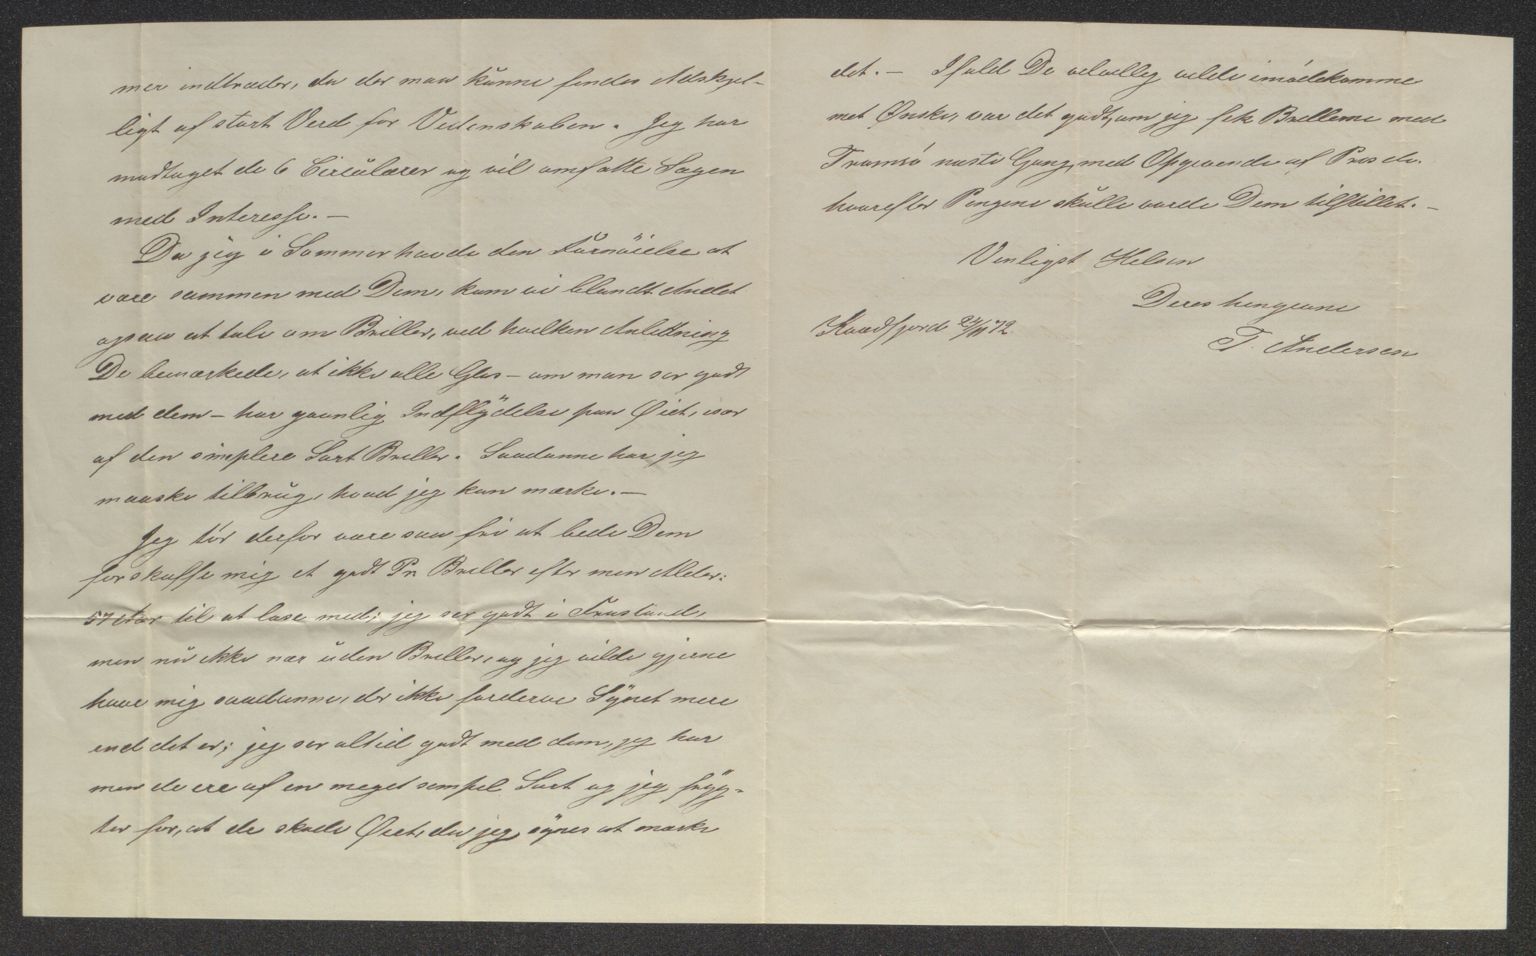 mer indtræder, da der maa kunne findes Adskjel-
ligt af stort Værd for Videnskaben. Jeg har
modtaget de 6 Circulærer og vil omfatte Sagen
med Interesse. —
Da jeg i Sommer havde den Fornøielse at
være sammen med Dem, kom vi blandt Andet
ogsaa at tale om Briller, ved hvilken Anledning
De bemærkede, at ikke alle Glas – om man ser godt
med dem – har gavnlig Indflydelse paa Øiet, især
af den simplere Sort Briller. Saadanne har jeg
maaske tilbrug, hvad jeg kan mærke. —
Jeg tør derfor være saa fri at bede Dem
forskaffe mig et godt Pr Briller efter min Alder:
57 Aar til at læse med; jeg ser godt i Frastand,
men nu ikke nær uden Briller, og jeg vilde gjerne
have mig saadanne, der ikke forderve Synet mere
end det er; jeg ser altid godt med dem, jeg har
men de ere af en meget simpel Sort og jeg fryg-
ter for, at de skade Øiet, da jeg synes at mærke
det. — Ifald De velvillig vilde imødekomme
mit Ønske, var det godt, om jeg fik Brillerne med
Tromsø næste Gang, med Opgivende af Prisen
hvorefter Pengene skulle vorde Dem tilstillet. —
Venligst Hilsen
Deres hengivne
T. Andersen
Kaafjord 27/11 72